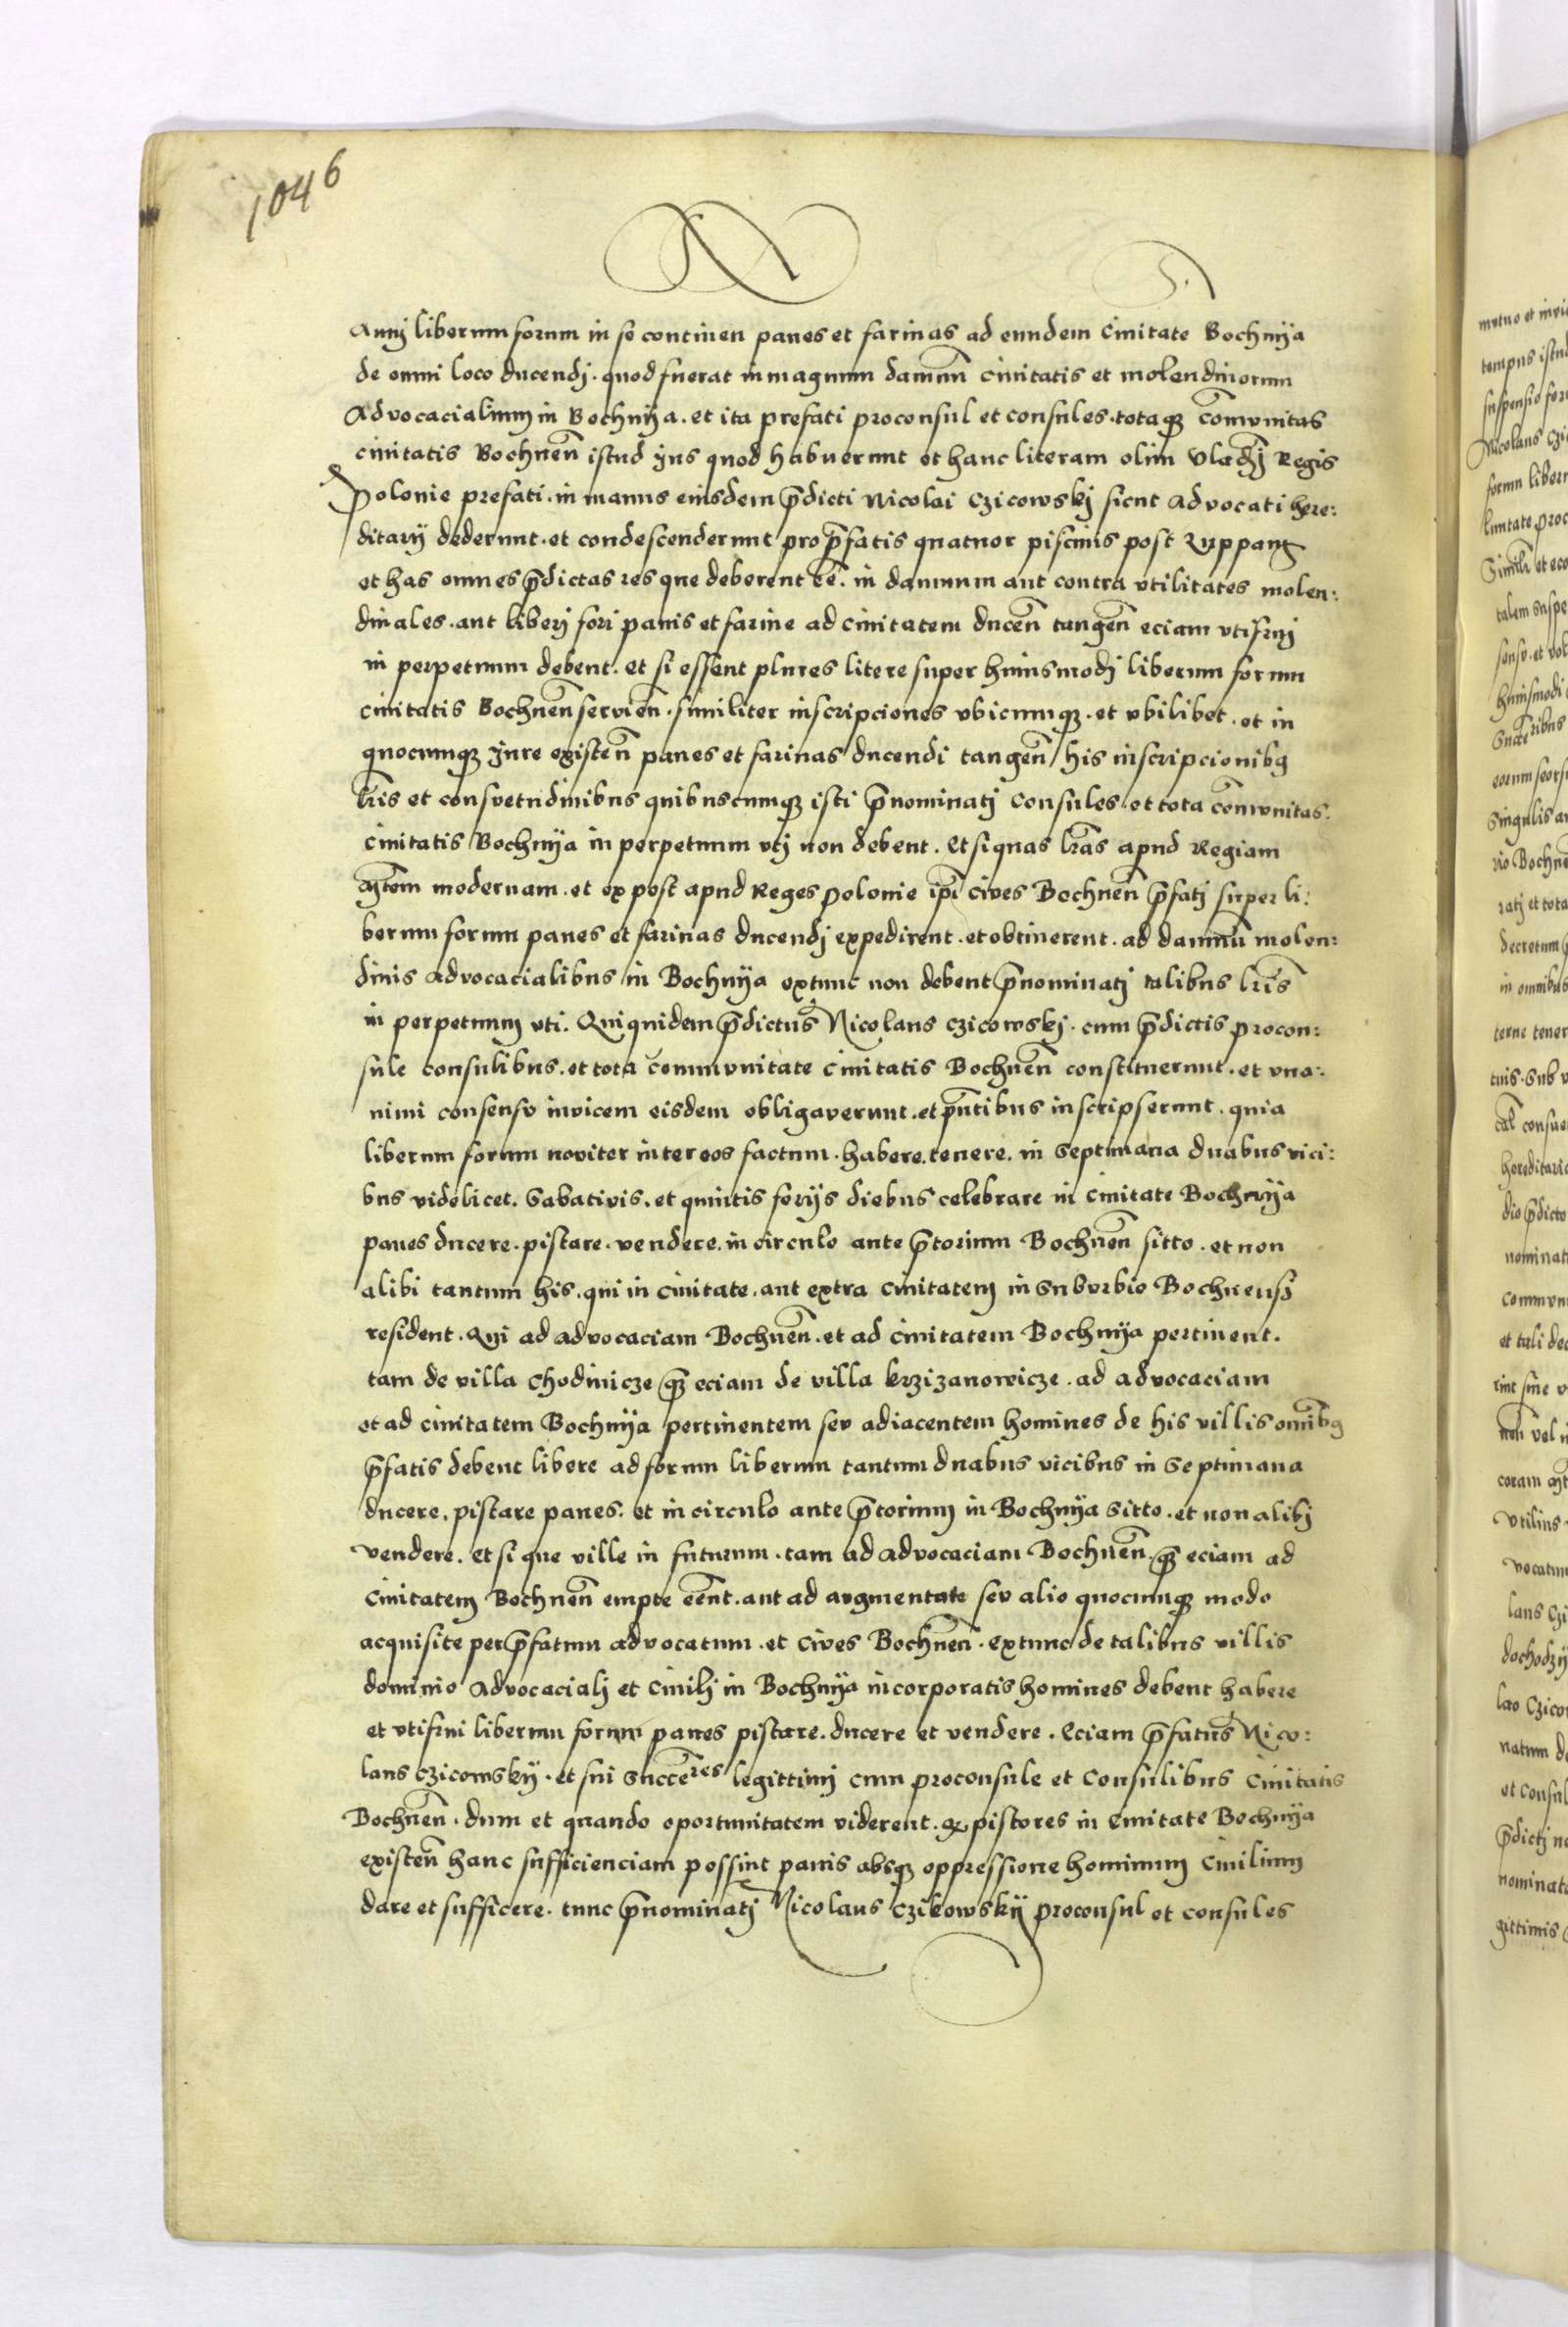 1046
N
S.
Annj liberum forum in se continen̄ panes et farinas ad eundem Ciuitate Bochnÿa
de omni loco ducendj. quod fuerat in magnum damnū ciuitatis et molendinorum
Advocacialium in Bochnÿa. et ita prefati proconsul et consules. totaqꝫ com̄vnitas
ciuitatis Bochnen̄ istud Jus quod habuerunt et hanc literam olim Vladj̄ Regis
Polonie prefati. in manus eiusdem p̄dicti Nicolai Czicowskj sicut advocati here:
ditarÿ dederunt. et condescenderunt pro p̄fatis quatuor piscinis post Zuppam
et has omnes p̄dictas res que deberent eē. in damnum aut contra vtilitates molen:
dinales. aut liberj fori panis et farine ad ciuitatem ducen̄ tangen̄ eciam vtifruj
in perpetuum debent. et si essent plures litere super huiusmodj liberum forum
ciuitatis Bochnen̄ servien̄. similiter inscripciones vbicumqꝫ. et vbilibet. et in
quocumqꝫ Jure existen̄ panes et farinas ducendi tangen̄ his inscripcionibꝫ
lr̄is et consvetudinibus quibuscumqꝫ isti p̄nominatj consules et tota com̄vnitas.
ciuitatis Bochnÿa in perpetuum vtj non debent. Et si quas lr̄as apud Regiam
M̄tem modernam. et ex post apud Reges Polonie ip̄i cives Bochnen̄ p̄fatj super li:
berum forum panes et farinas ducendj expedirent. et obtinerent. ad damnū molen:
dinis advocacialibus in Bochnÿa extunc non debent p̄nominatj talibus lr̄is
in perpetuum vti. Quiquidem p̄dictus Nicolaus Czicowskj. cum p̄dictis procon:
sule consulibus. et tota communitate Ciuitatis Bochnen̄ constituerunt. et vna:
nimi consensv invicem eisdem obligaverunt. et p̄ntibus inscripserunt. quia
liberum forum noviter inter eos factum. habere. tenere. in Septimana duabus vici:
bus videlicet. Sabativis. et quintis ferÿs diebus celebrare in Ciuitate Bochnÿa
panes ducere. pistare. vendere. in circulo ante p̄torium Bochnen̄ sitto. et non
alibi tantum his. qui in ciuitate. aut extra Ciuitatem in Subvrbio Bochnensi
resident. Qui ad advocaciam Bochnen̄. et ad ciuitatem Bochnÿa pertinent.
tam de villa Chodinicze qꝫ eciam de villa Krzizanowicze. ad advocaciam
et ad ciuitatem Bochnÿa pertinentem sev adiacentem homines de his villis omībꝫ
p̄fatis debent libere ad forum liberum tantum duabus vicibus in Septimana
ducere. pistare panes. et in circulo ante p̄torium in Bochnÿa sitto. et non alibj
vendere. et si que ville in futurum. tam ad advocaciam Bochnen̄. qꝫ eciam ad
Ciuitatem Bochnen̄ empte eēnt. aut ad avgmentate sev alio quocumqꝫ modo
acquisite per p̄fatum advocatum. et cives Bochnen̄. extunc de talibus villis
dominio advocacialj et Ciuilj in Bochnÿa incorporatis homines debent habere
et vtifrui liberum forum panes pistare. ducere et vendere. Eciam p̄fatus Nico:
laus Czicowskÿ. et sui Succēres legittimj cum proconsule et Consulibus Ciuitatis
Bochnen̄. dum et quando oportunitatem viderent. ꝙ pistores in Ciuitate Bochnÿa
existen̄ hanc sufficienciam possint panis absqꝫ oppressione hominum Ciuilium
dare et sufficere. tunc p̄nominatj Nicolaus Czikowskÿ proconsul et consules